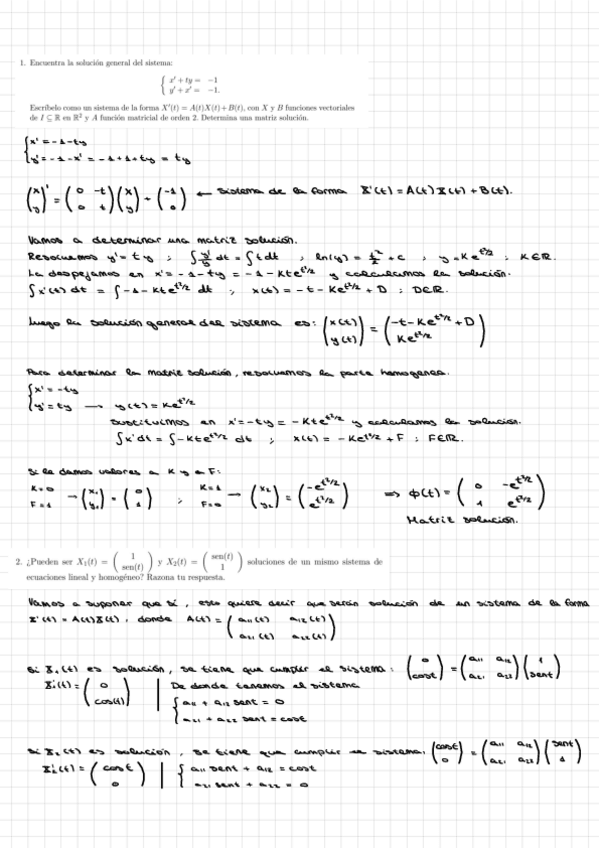 1. Encuentra la solución general del sistema:
{ x' + ty = −1
y' + x' = −1.
Escríbelo como un sistema de la forma X'(t) = A(t)X(t) + B(t), con X y B funciones vectoriales
de I ⊆ ℝ en ℝ² y A función matricial de orden 2. Determina una matriz solución.
{ x' = -1-ty
y' = -1-x' = -1+1+ty = ty
(x y)' = (0 -t 0 t)(x y) + (-1 0) ← sistema de la forma X'(t) = A(t)X(t) + B(t).
Vamos a determinar una matriz solución.
Resolvemos y' = ty ; ∫ y'/y dt = ∫ t dt , ln(y) = t²/2 + c , y = Ke^{t²/2} ; K∈ℝ.
La despejamos en x' = -1-ty = -1-Kte^{t²/2} y calculamos la solución.
∫x'(t) dt = ∫-1-Kte^{t²/2} dt ; x(t) = -t-Ke^{t²/2}+D ; D∈ℝ.
Luego la solución general del sistema es: (x(t) y(t)) = (-t-Ke^{t²/2}+D Ke^{t²/2})
Para determinar la matriz solución, resolvemos la parte homogénea.
{ x' = -ty
y' = ty → y(t) = Ke^{t²/2}
Sustituimos en x' = -ty = -Kte^{t²/2} y calculamos la solución.
∫x'dt = ∫-Kte^{t²/2} dt ; x(t) = -Ke^{t²/2}+F ; F∈ℝ.
Si le damos valores a K y a F:
K=0 F=1 → (x₁ y₁) = (0 1) ; K=1 F=0 → (x₂ y₂) = (-e^{t²/2} e^{t²/2}) ⇒ φ(t) = (0 -e^{t²/2} 1 e^{t²/2})
Matriz solución.
2. ¿Pueden ser X₁(t) = (1 sen(t)) y X₂(t) = (sen(t) 1) soluciones de un mismo sistema de
ecuaciones lineal y homogéneo? Razona tu respuesta.
Vamos a suponer que sí, esto quiere decir que serán solución de un sistema de la forma
X'(t) = A(t)X(t), donde A(t) = (a₁₁(t) a₁₂(t) a₂₁(t) a₂₂(t))
Si X₁(t) es solución, se tiene que cumplir el sistema: (0 cost) = (a₁₁ a₁₂ a₂₁ a₂₂)(1 sent)
X₁'(t) = (0 cos(t)) | De donde tenemos el sistema
{ a₁₁ + a₁₂ sent = 0
a₂₁ + a₂₂ sent = cost
Si X₂(t) es solución, se tiene que cumplir el sistema: (cost 0) = (a₁₁ a₁₂ a₂₁ a₂₂)(sent 1)
X₂'(t) = (cost 0) | { a₁₁ sent + a₁₂ = cost
a₂₁ sent + a₂₂ = 0